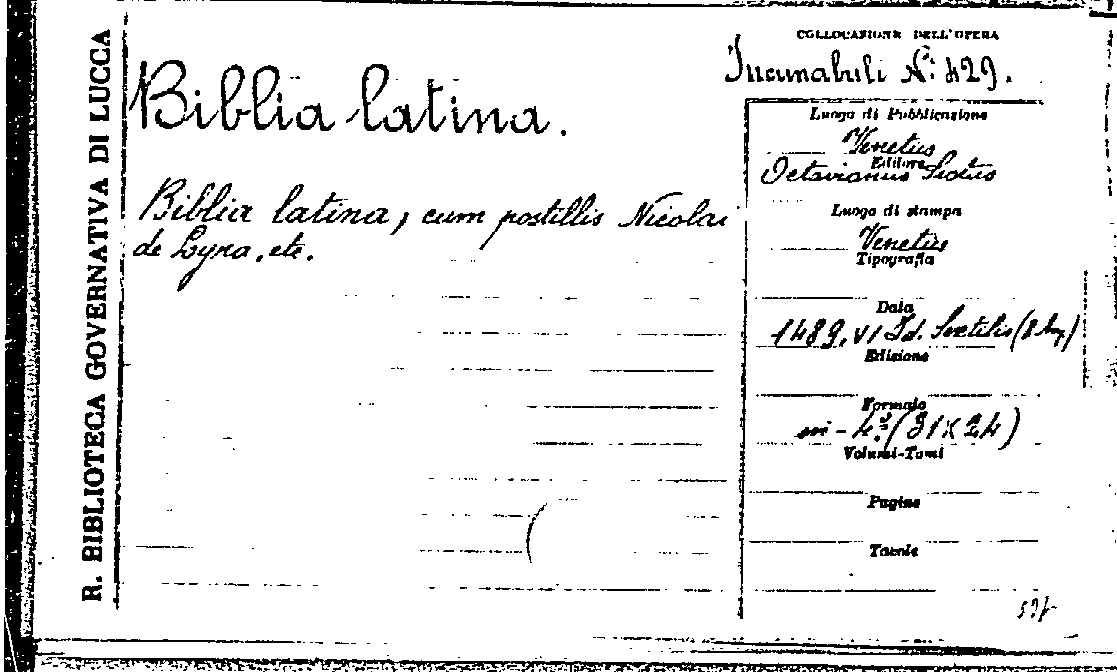 R. BIBLIOTECA GOVERNATIVA DI LUCCA
Biblia latina.
Biblia latina, cum postillis Nicolai
de Lyra, etc.
COLLOCAZIONE DELL'OPERA
Incunabuli N.º 429.
Luogo di Pubblicazione
Venetus
Editore
Octavianus Scotus
Luogo di stampa
Venetus
Tipografia
Data
1489, VI Id. Sextilis (8 Ag.)
Edizione
Formato
in-4.º (31x24)
Volumi-Tomi
Pagine
Tavole